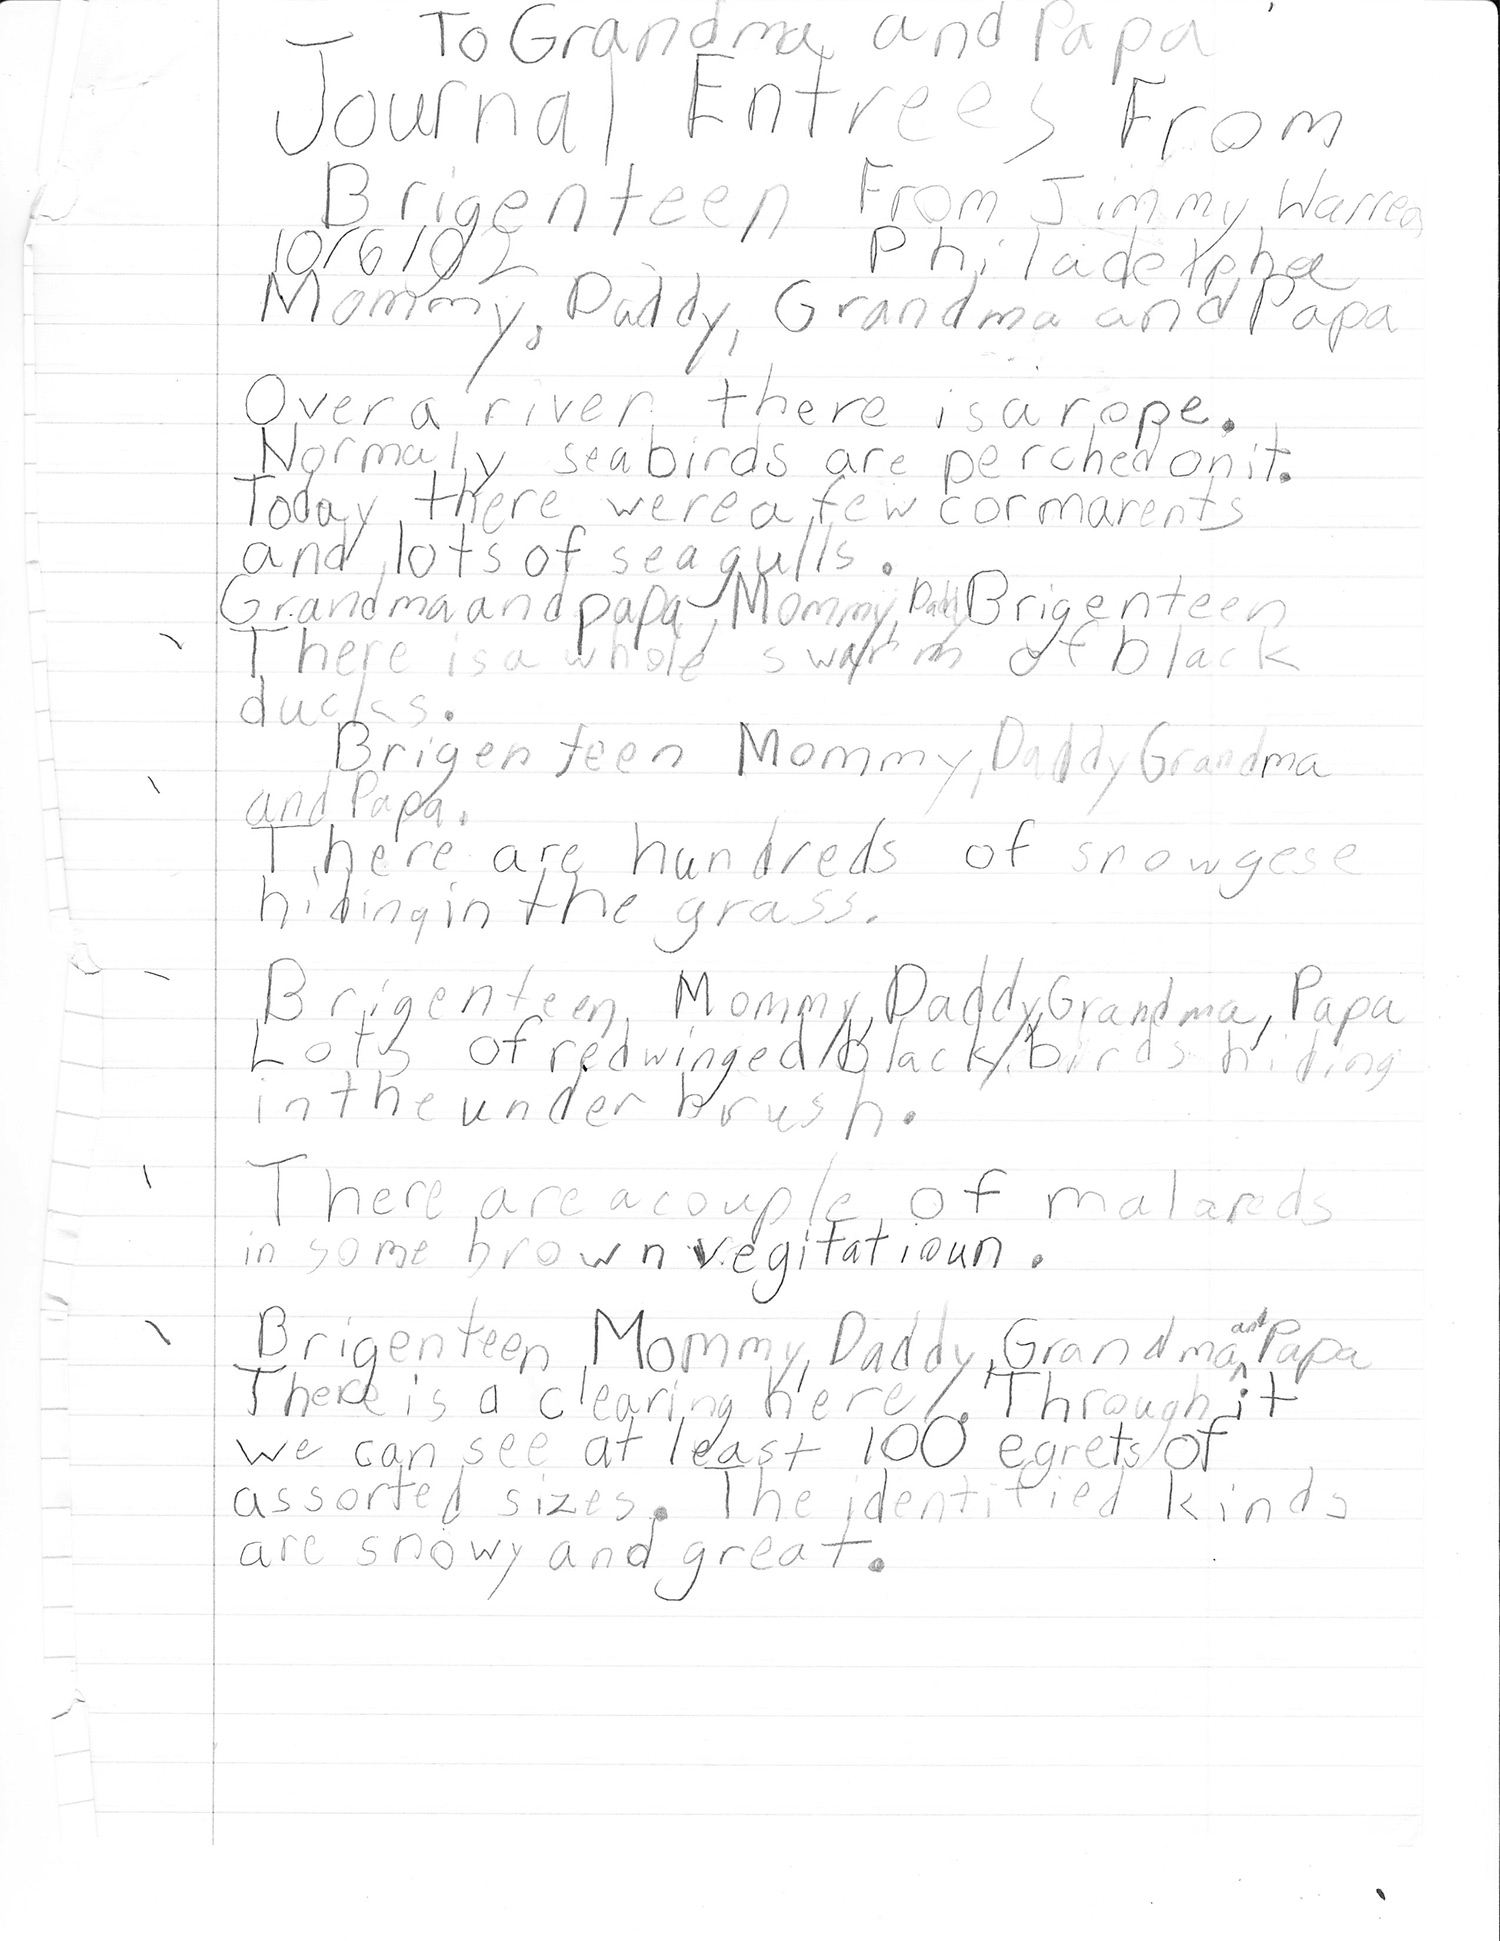 To Grandma and Papa
Journal Entrees From
Brigenteen From Jimmy Warren
10/6/02 Philadelpha
Mommy, Daddy, Grandma and Papa
Over a river there is a rope.
Normaly seabirds are perched on it.
Today there were a few cormarents
and lots of sea gulls.
Grandma and papa, Mommy, Daddy Brigenteen
There is a whole swarm of black
ducks.
Brigenteen Mommy, Daddy Grandma
and Papa.
There are hundreds of snowgese
hiding in the grass.
Brigenteen, Mommy, Daddy, Grandma, Papa
Lots of redwinged black birds hiding
in the under brush.
There are a couple of malareds
in some brown vegitatioun.
Brigenteen, Mommy, Daddy, Grandma and Papa
There is a clearing here. Through it
we can see at least 100 egrets of
assorted sizes. The identified kinds
are snowy and great.